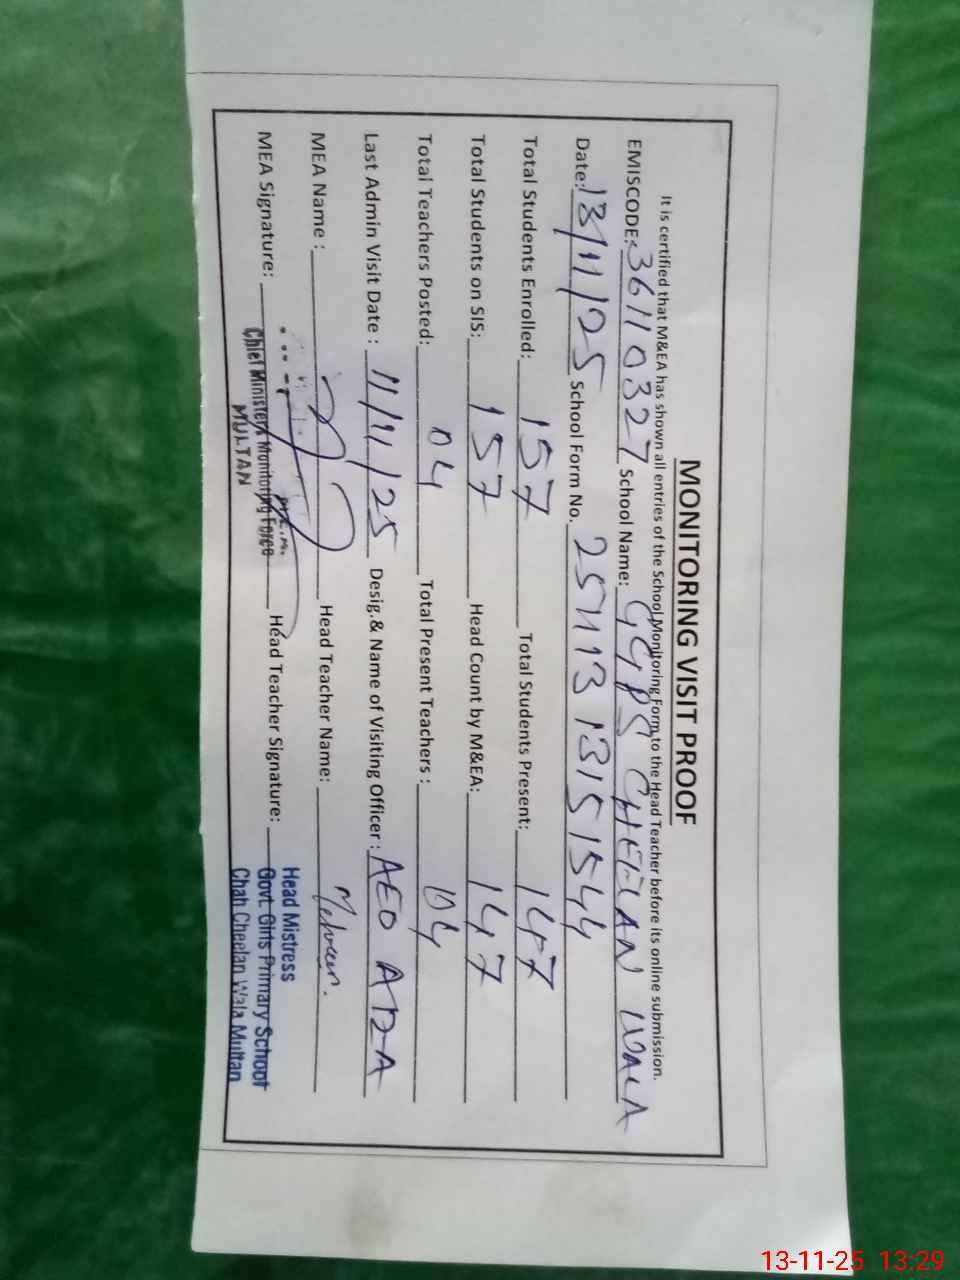 MONITORING VISIT PROOF
It is certified that M&EA has shown all entries of the School Monitoring Form to the Head Teacher before its online submission.
EMISCODE: 36110327 School Name: GGPS CHELAN WALA
Date: 13/11/25 School Form No. 25111313151544
Total Students Enrolled: 157 Total Students Present: 147
Total Students on SIS: 157 Head Count by M&EA: 147
Total Teachers Posted: 04 Total Present Teachers : 04
Last Admin Visit Date : 11/11/25 Desig.& Name of Visiting Officer : AEO
MEA Name : Head Teacher Name:
MEA Signature: Head Teacher Signature:
M.E.A.
Chief Ministers Monitoring Force
MULTAN
Head Mistress
Govt. Girls Primary School
Chah Cheelan Wala Multan
13-11-25 13:29